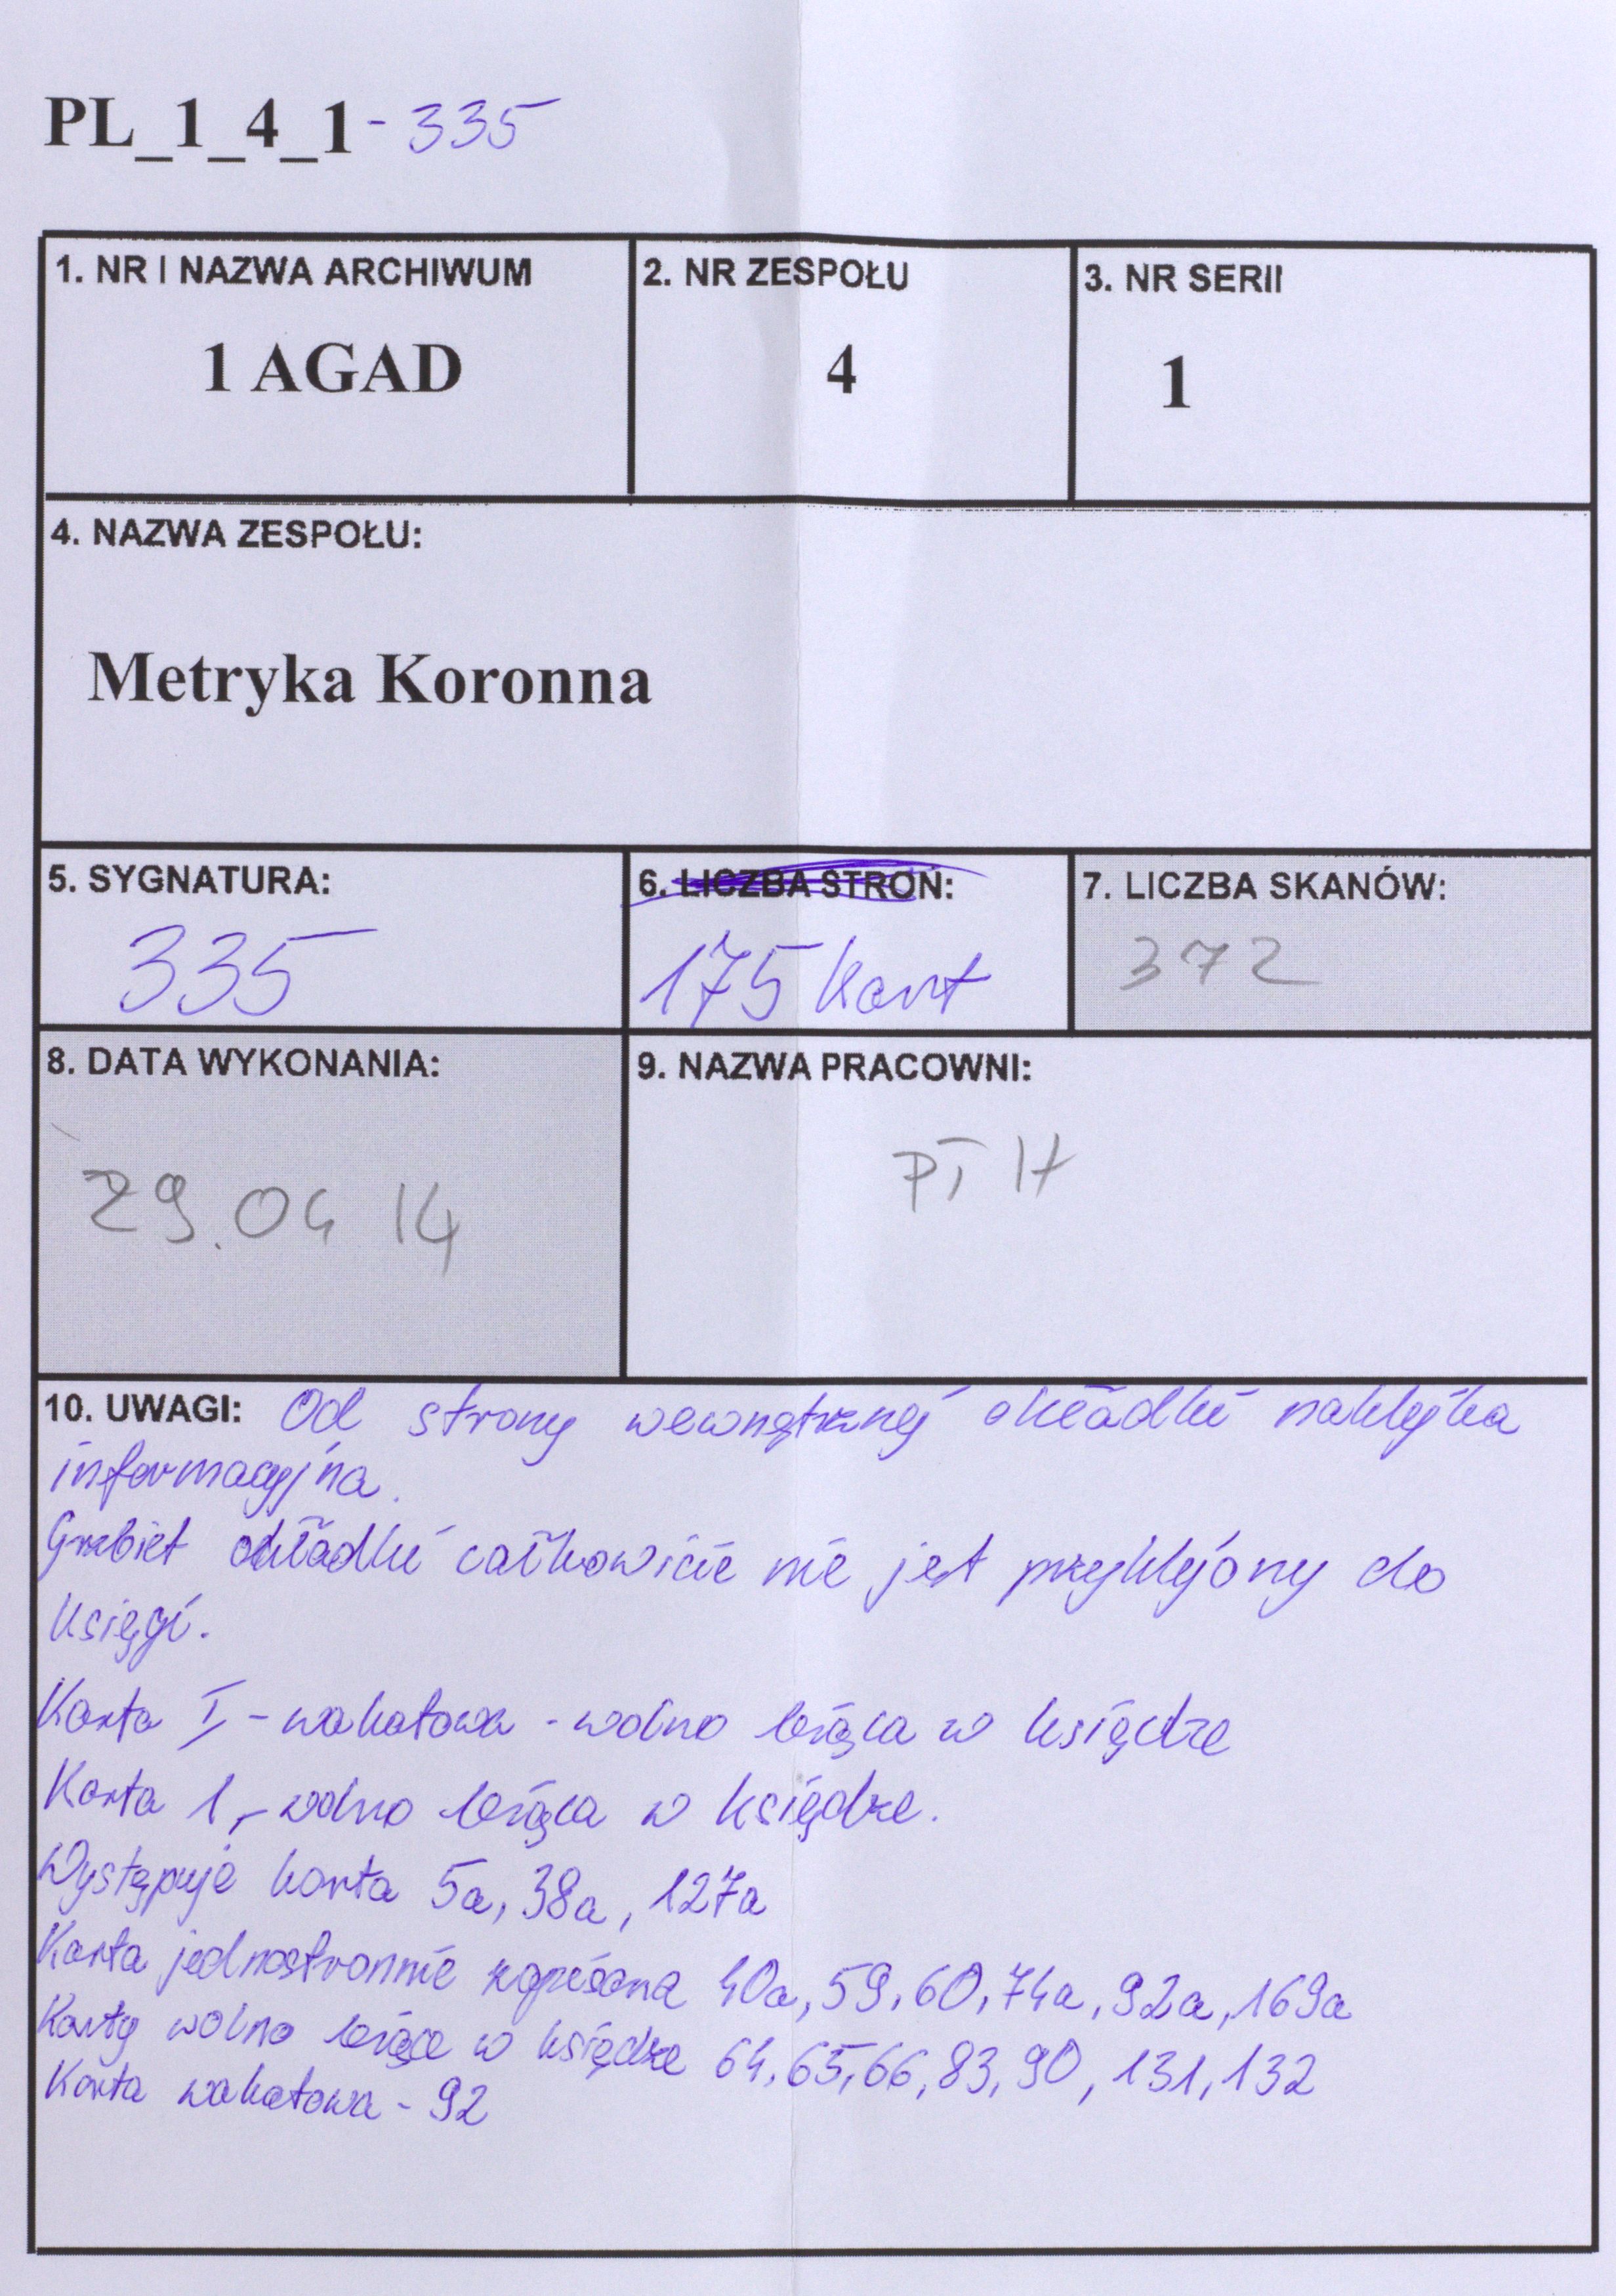 PL_1_4_1-335
1. NR I NAZWA ARCHIWUM
1 AGAD
2. NR ZESPOŁU
4
3. NR SERII
1
4. NAZWA ZESPOŁU:
Metryka Koronna
5. SYGNATURA:
335
6. LICZBA STRON:
175 kart
7. LICZBA SKANÓW:
372
8. DATA WYKONANIA:
29.04 14
9. NAZWA PRACOWNI:
10. UWAGI: Od strony wewnętrznej okładki naklejka
informacyjna.
Grzbiet okładki całkowicie nie jest przyklejony do
księgi.
Karta I - wakatowa - wolno leżąca w księdze
Karta 1, - wolno leżąca w księdze.
Występuje karta 5a, 38a, 127a
Karta jednostronnie zapisana 40a, 59, 60, 74a, 92a, 169a
Karty wolno leżące w księdze 64, 65, 66, 83, 90, 131, 132
Karta wakatowa - 92